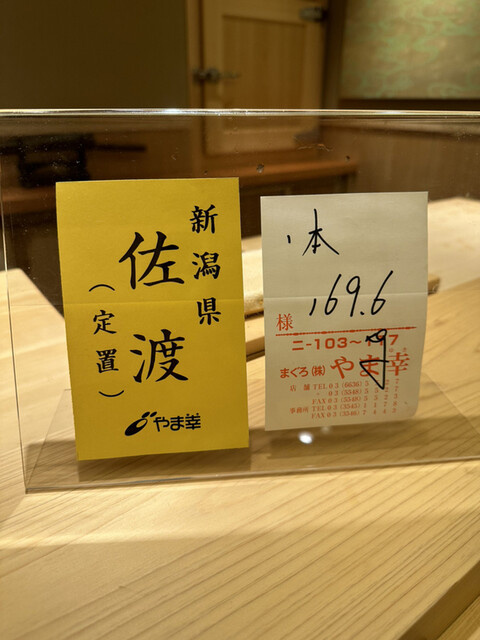 新潟県
佐渡
（定置）
やま幸
本
169.6
様
ニ-103~117
まぐろ(株)やま幸
店舗TEL03(6636)
03(5548)
FAX03(5548)
事務所TEL03(3543)
FAX03(3546)7443